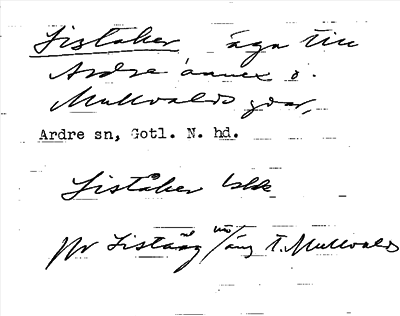 Liståker äga till
Ardre annex o.
Mullvalds gdar,
Ardre sn, Gotl. N. hd.
Liståker
pr Listäng /äng t. Mullvalds